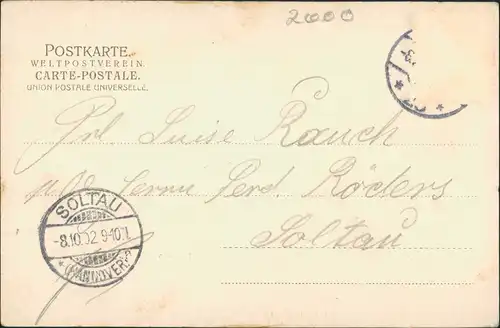 2000
POSTKARTE.
WELTPOSTVEREIN.
CARTE-POSTALE.
UNION POSTALE UNIVERSELLE.
Frl. Luise Rauch
Herrn Ferd. Röders
Soltau
SOLTAU
-8.10.02 9-10V.
* (HANNOVER) *